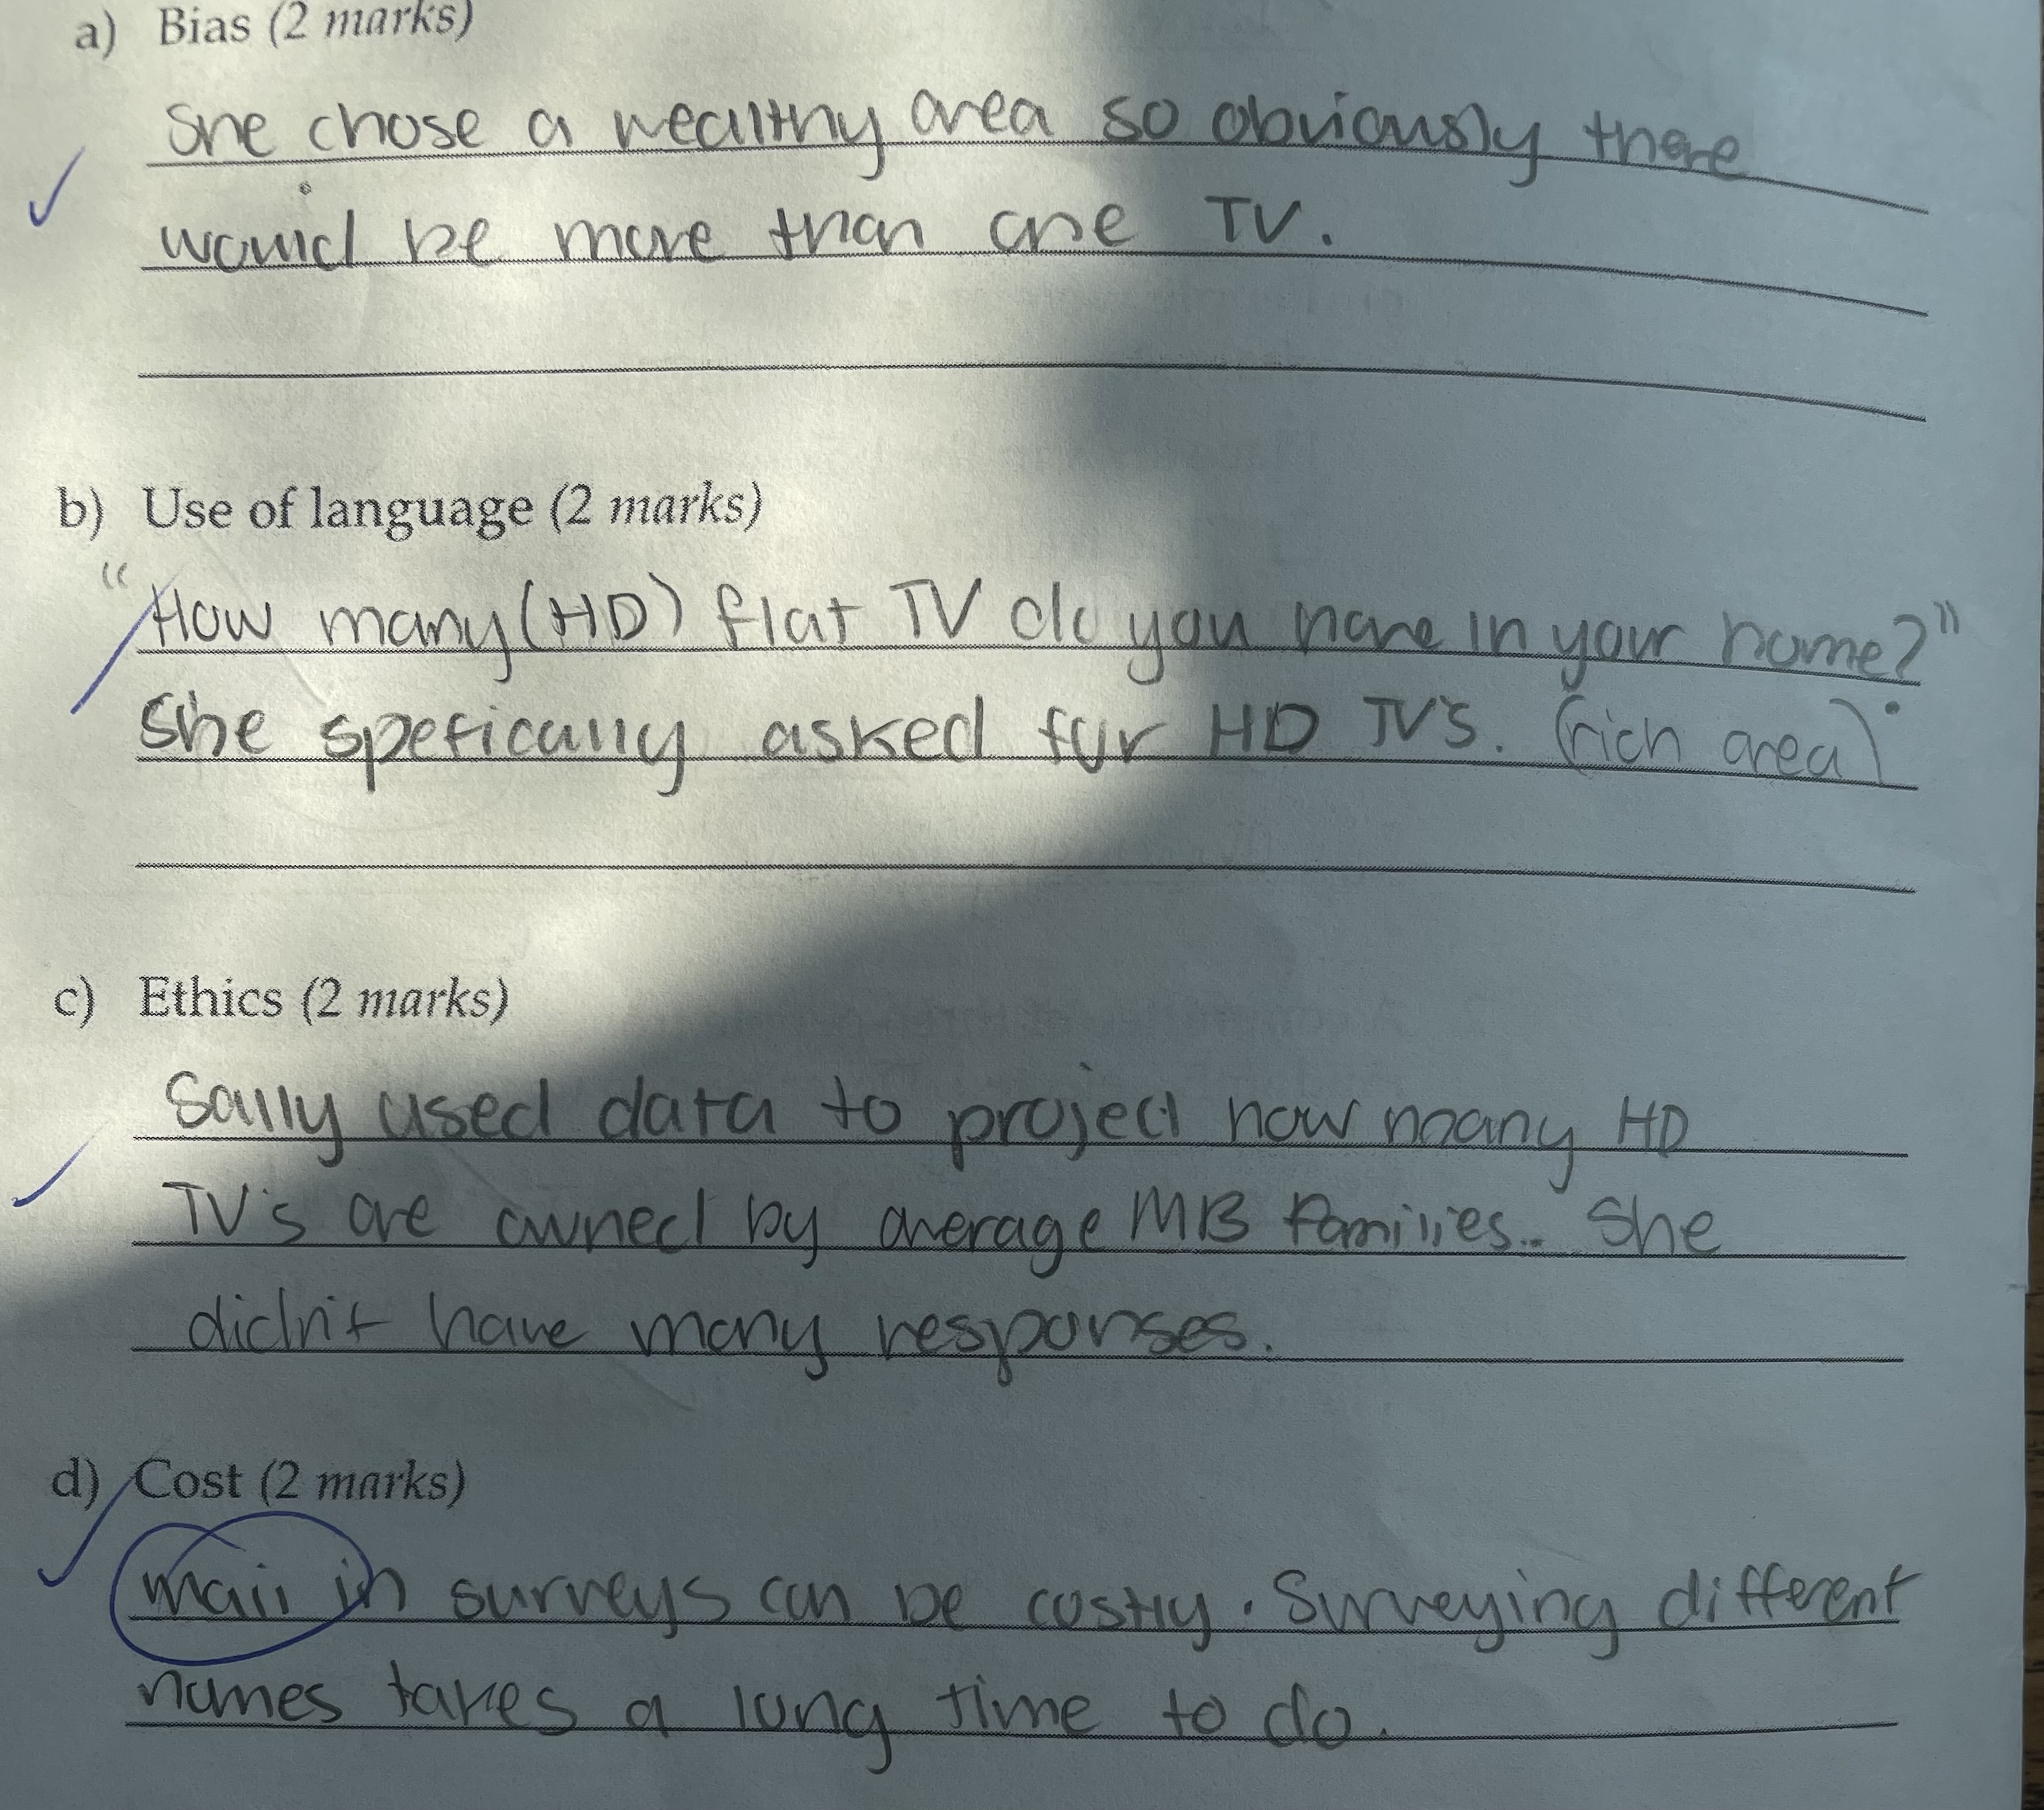 a) Bias (2 marks)
She chose a wealthy area so obviously there
would be more than one TV.
b) Use of language (2 marks)
"How many (HD) flat TV do you have in your home?"
She speficially asked for HD TV's. (rich area)
c) Ethics (2 marks)
Sally used data to project how many HD
TV's are owned by average MB families.. She
didn't have many responses.
d) Cost (2 marks)
mail in surveys can be costly. Surveying different
homes takes a long time to do.